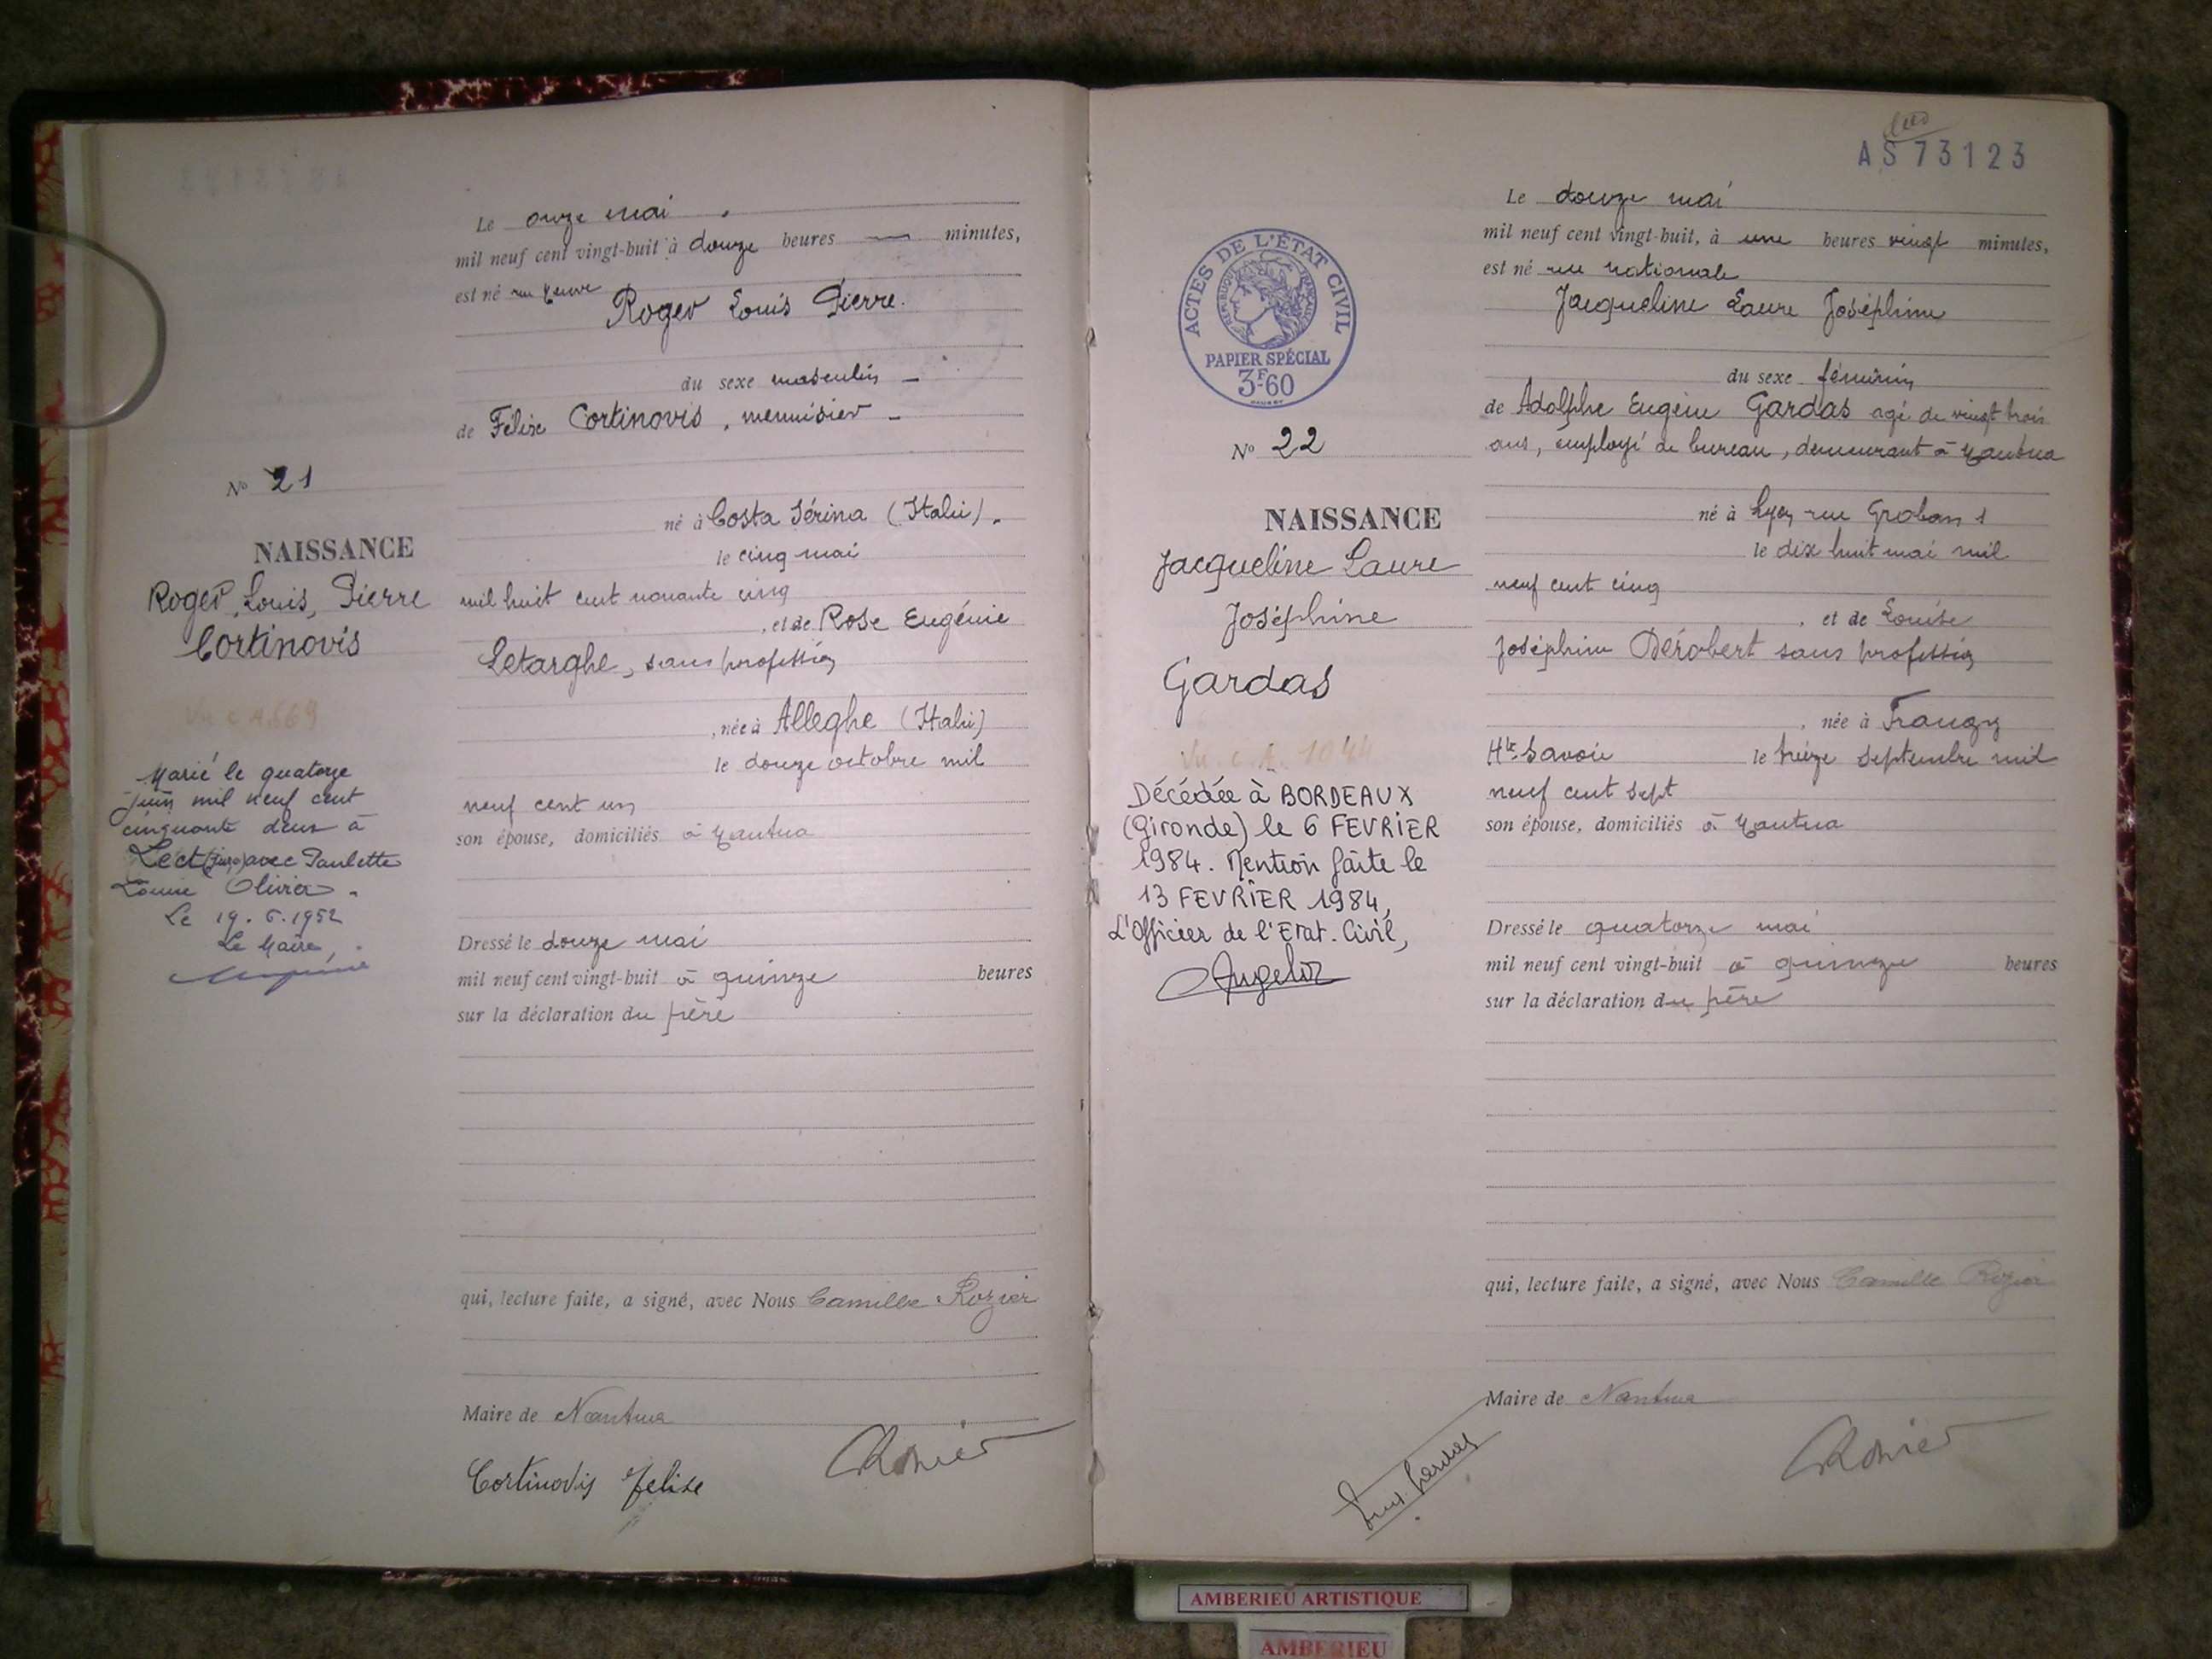 Le onze mai
mil neuf cent vingt-huit à douze heures — minutes,
est né rue neuve
Roger Louis Pierre.
du sexe masculin –
de Félix Cortinovis, menuisier –
né à Costa Sérina (Italie).
le cinq mai
mil huit cent nonante cinq
, et de Rose Eugénie
Letarghe, sans profession
, née à Alleghe (Italie)
le douze octobre mil
neuf cent un
son épouse, domiciliés à Nantua
Dressé le douze mai
mil neuf cent vingt-huit à quinze heures
sur la déclaration du père
qui, lecture faite, a signé, avec Nous Camille Rozier
Maire de Nantua
Cortinovis Felise
CRozier
No 21
NAISSANCE
Roger, Louis, Pierre
Cortinovis
Vu c A 869
Marié le quatorze
juin mil neuf cent
cinquante deux à
Lect (Jura) avec Paulette
Louise Olivier.
Le 19.6.1952
Le Maire,
AS 73123
ACTES DE L'ÉTAT CIVIL
RÉPUBLIQUE FRANÇAISE
PAPIER SPÉCIAL
3F60
No 22
NAISSANCE
Jacqueline Laure
Joséphine
Gardas
Vu. c. A. 1044
Décédée à BORDEAUX
(Gironde) le 6 FEVRIER
1984. Mention faite le
13 FEVRIER 1984,
L'Officier de l'Etat-Civil,
Le douze mai
mil neuf cent vingt-huit, à une heures vingt minutes,
est né rue nationale
Jacqueline Laure Joséphine
du sexe féminin
de Adolphe Eugène Gardas agé de vingt trois
ans, employé de bureau, demeurant à Nantua
né à Lyon rue Grolan 1
le dix huit mai mil
neuf cent cinq
, et de Louise
Joséphine Dérobert sans profession
, née à Frangy
Hte Savoie le treize septembre mil
neuf cent sept
son épouse, domiciliés à Nantua
Dressé le quatorze mai
mil neuf cent vingt-huit à quinze heures
sur la déclaration du père
qui, lecture faite, a signé, avec Nous Camille Rozier
Maire de Nantua
CRozier
AMBERIEU ARTISTIQUE
AMBERIEU